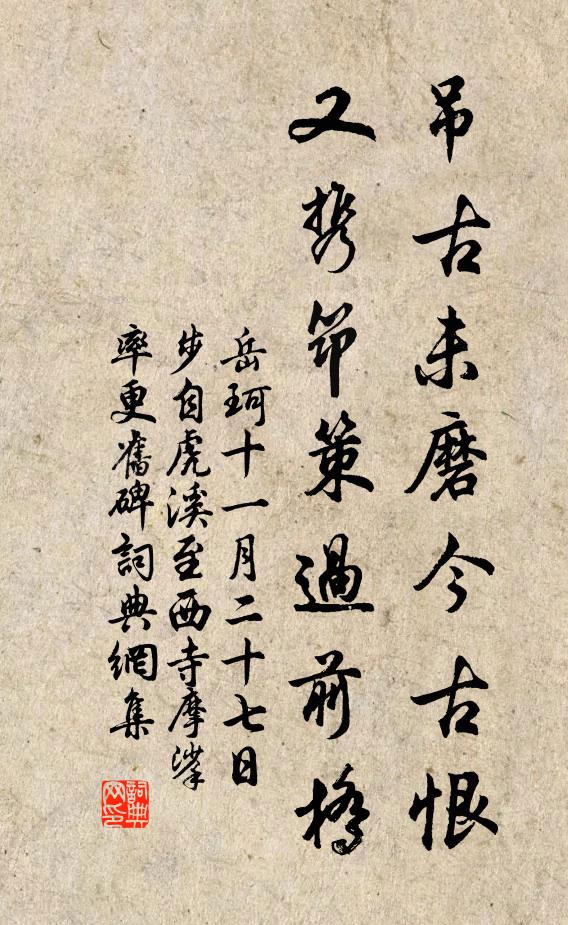 吊古未磨今古恨
又携筇策過前橋
岳珂十一月二十七日
步自虎溪至西寺摩挲
率更舊碑詞典網集
詞典
网印